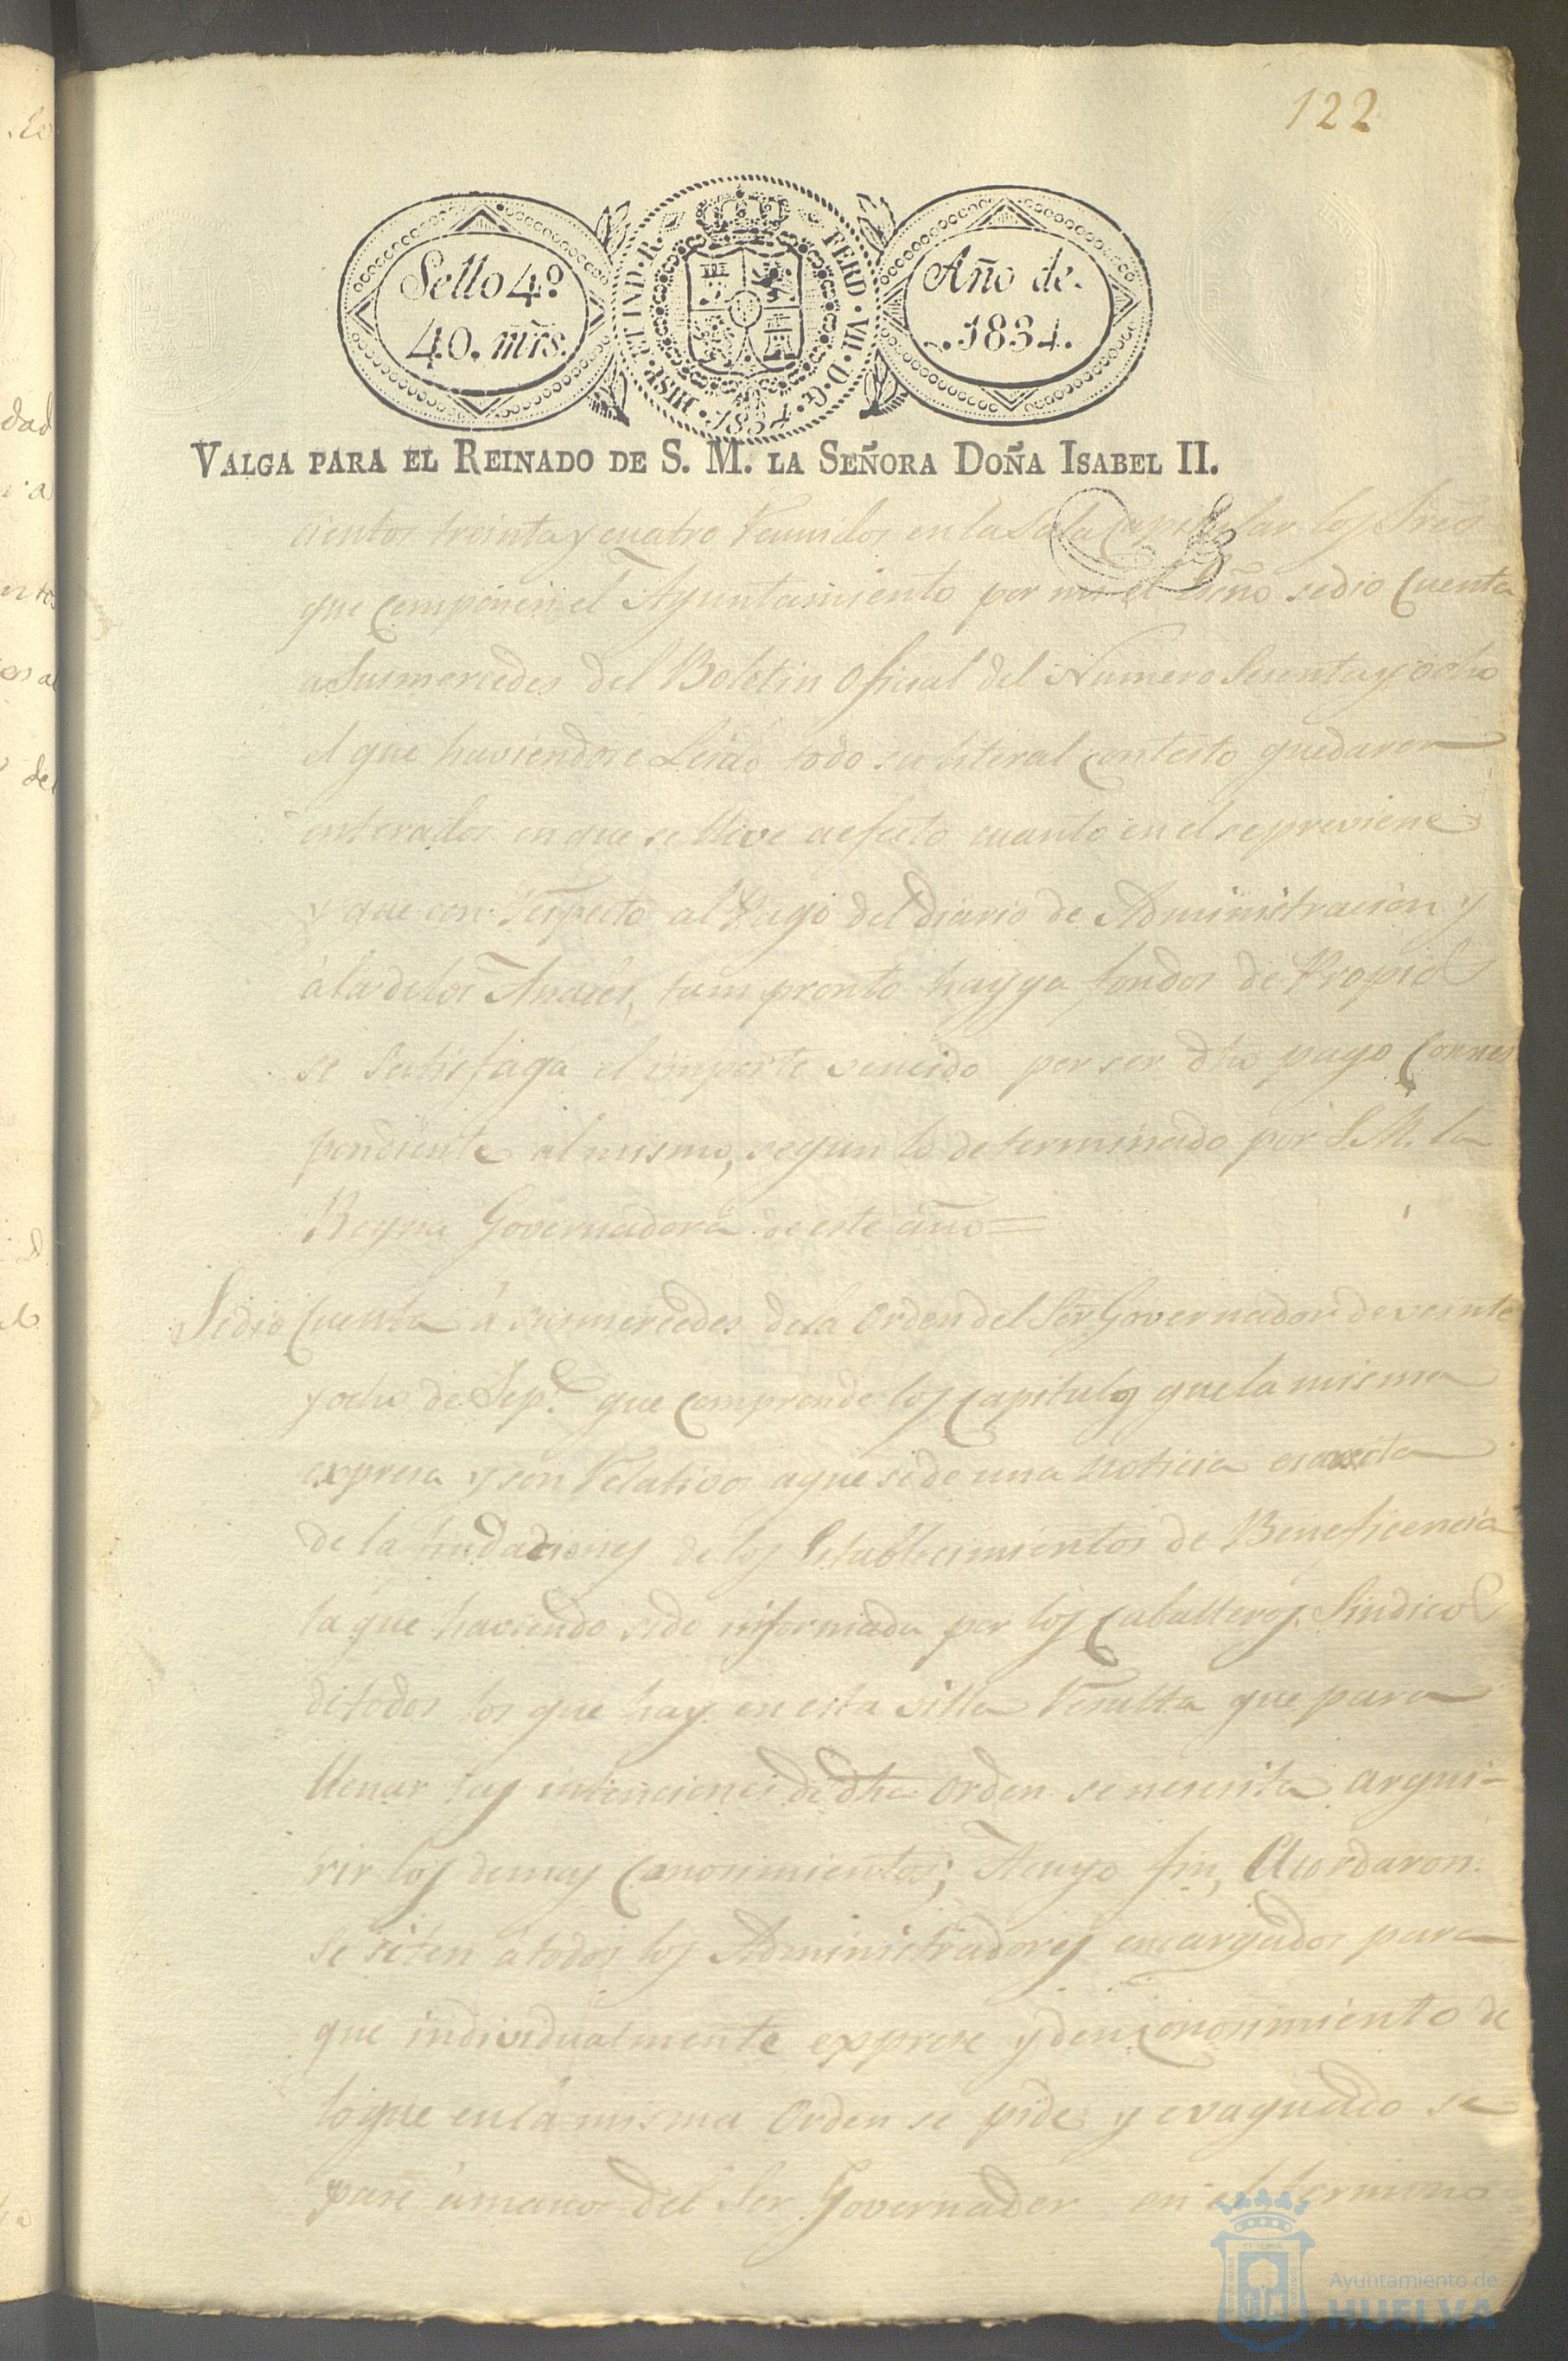 122
Sello 4.º
40. mrs.
HISP. ET IND. R.
FERD. VII. D. G.
1834
Año de
1834.
VALGA PARA EL REINADO DE S. M. LA SEÑORA DOÑA ISABEL II.
cientos treinta y cuatro Reunidos en la Sala Capitular los Sres
que componen el Ayuntamiento por mi el Esno se dio Cuenta
a Susmercedes del Boletin Oficial del Numero Sesenta y ocho
el que haviendose Leido todo su literal contesto quedaron
enterados en que se lleve a efecto cuanto en el se previene
y que con respecto al Pago del diario de Administracion y
à la de los Anales, tam pronto hayga fondos de Propios
se satisfaga el importe vencido por ser dho pago Corres
pondiente al mismo, segun lo determinado por S. M. la
Reyna Governadora de este año =
Se dio Cuenta à susmercedes de la Orden del Sor Governador de veinte
y ocho de Sep.e que comprende los Capitulos que la misma
expresa y son Relativos a que se de una noticia esacta
de la fundaciones de los Establecimientos de Beneficencia
la que haviendo sido informada por los Caballeros Sindicos
de todos los que hay en esta villa Resulta que para
llenar las intenciones de dha Orden se nesesita arqui-
rir los demas Conosimientos; A cuyo fin, Acordaron
se siten à todos los Administradores encargados para
que individualmente exprese y den conosimiento de
lo que en la misma Orden se pide y evaquado se
pase à manos del Sor Governador en el termino
Ayuntamiento de
HUELVA